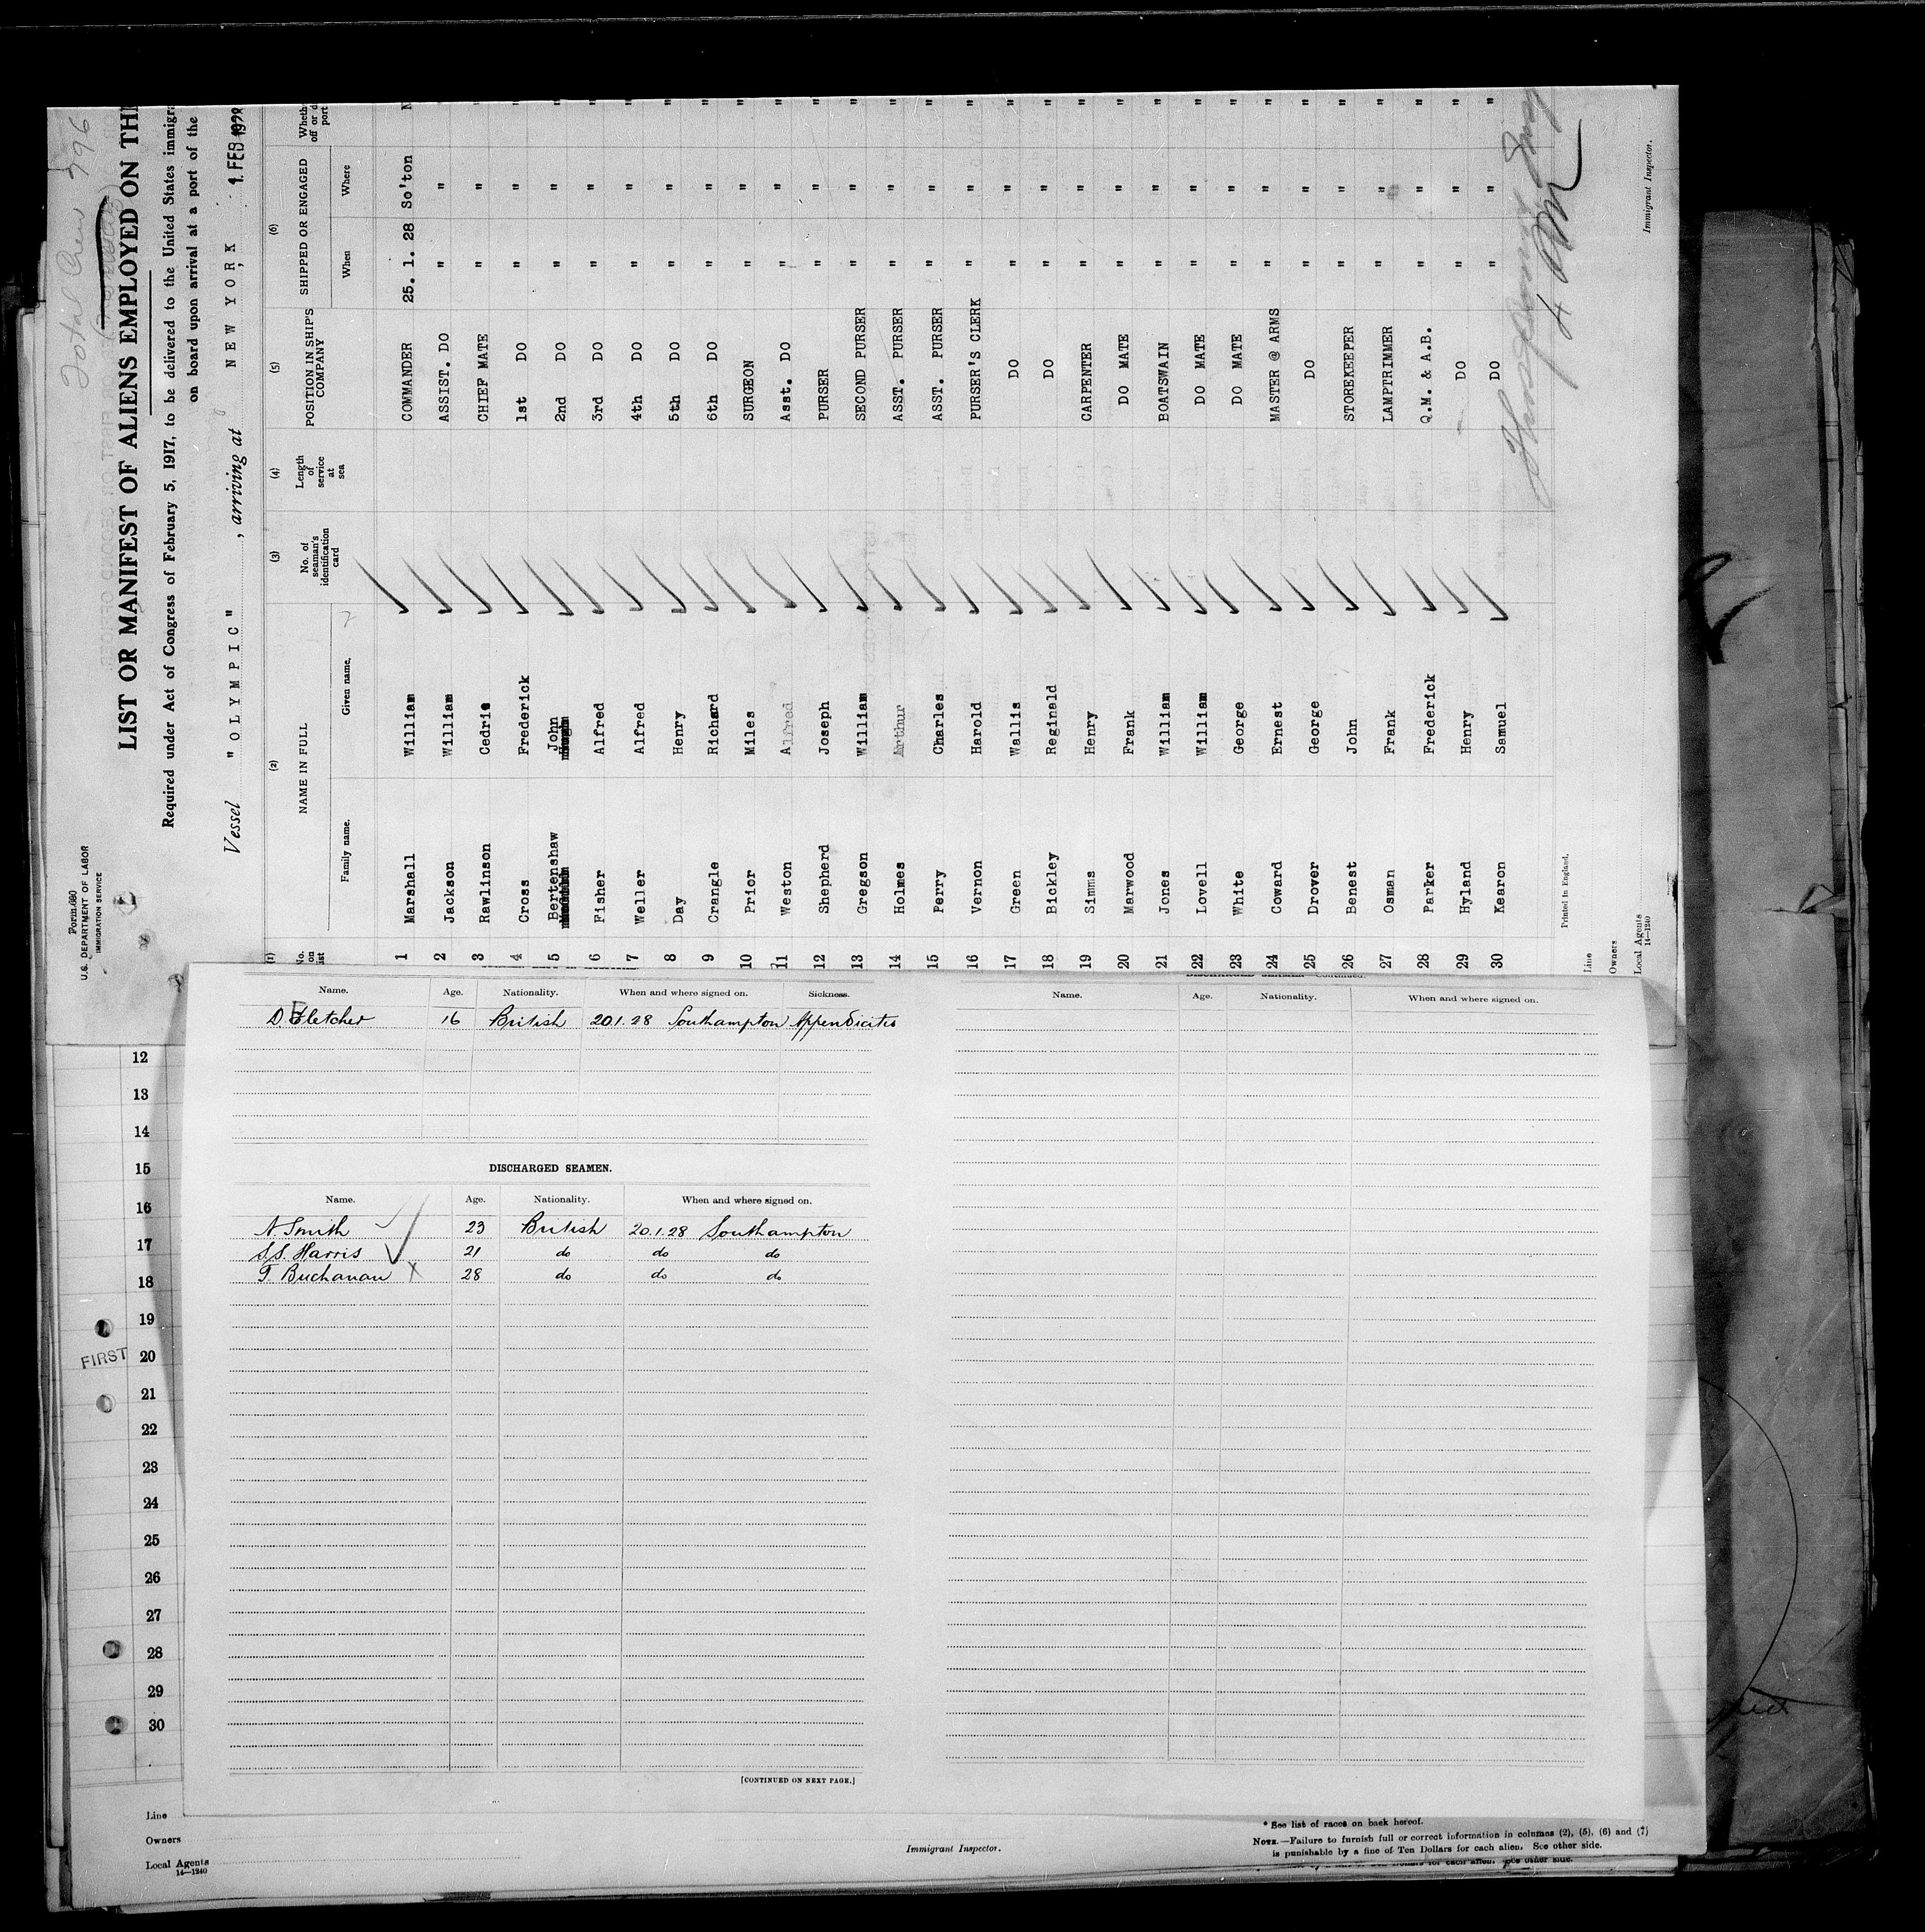 Total Crew 796
Form 680
U.S. DEPARTMENT OF LABOR
IMMIGRATION SERVICE
LIST OR MANIFEST OF ALIENS EMPLOYED ON THE
Required under Act of Congress of February 5, 1917, to be delivered to the United States immigra
on board upon arrival at a port of the
Vessel "OLYMPIC", arriving at NEW YORK, 1. FEB 1928
(1) (2) (3) (4) (5) (6)
No. on list NAME IN FULL No. of seaman's identification card Length of service at sea POSITION IN SHIP'S COMPANY SHIPPED OR ENGAGED Wheth off or d port
Family name. Given name. When Where
1 Marshall William COMMANDER 25. 1. 28 So'ton N
2 Jackson William ASSIST. DO " " "
3 Rawlinson Cedric CHIEF MATE " " "
4 Cross Frederick 1st DO " " "
5 Bertenshaw John 2nd DO " " "
6 Fisher Alfred 3rd DO " " "
7 Weller Alfred 4th DO " " "
8 Day Henry 5th DO " " "
9 Crangle Richard 6th DO " " "
10 Prior Miles SURGEON " " "
11 Weston Alfred Asst. DO " " "
12 Shepherd Joseph PURSER " " "
13 Gregson William SECOND PURSER " " "
14 Holmes Arthur ASST. PURSER " " "
15 Perry Charles ASST. PURSER " " "
16 Vernon Harold PURSER'S CLERK " " "
17 Green Wallis DO " " "
18 Bickley Reginald DO " " "
19 Simms Henry CARPENTER " " "
20 Marwood Frank DO MATE " " "
21 Jones William BOATSWAIN " " "
22 Lovell William DO MATE " " "
23 White George DO MATE " " "
24 Coward Ernest MASTER @ ARMS " " "
25 Drover George DO " " "
26 Benest John STOREKEEPER " " "
27 Osman Frank LAMPTRIMMER " " "
28 Parker Frederick Q.M. & A.B. " " "
29 Hyland Henry DO " " "
30 Kearon Samuel DO " " "
Printed in England.
Line
Owners
Local Agents
14—1240
Immigrant Inspector.
Name. Age. Nationality. When and where signed on. Sickness.
D. Fletcher 16 British 20.1.28 Southampton Appendicitis
DISCHARGED SEAMEN.
Name. Age. Nationality. When and where signed on.
A. Smith 23 British 20.1.28 Southampton
S.S. Harris 21 do do do
F. Buchanan X 28 do do do
[CONTINUED ON NEXT PAGE.]
DISCHARGED SEAMEN—Continued.
Name. Age. Nationality. When and where signed on.
12
13
14
15
16
17
18
19
FIRST 20
21
22
23
24
25
26
27
28
29
30
Line
Owners
Local Agents
14—1240
Immigrant Inspector.
* See list of races on back hereof.
NOTE.—Failure to furnish full or correct information in columns (2), (5), (6) and (7)
is punishable by a fine of Ten Dollars for each alien. See other side.